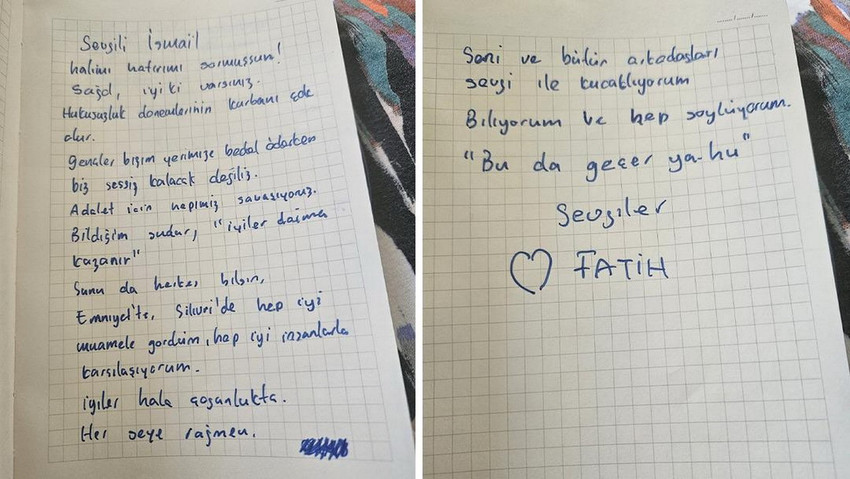 Sevgili İsmail
halimi hatırımı sormuşsun!
Sağol, iyi ki varsınız.
Hukusuzluk dönemlerinin kurbanı çok
olur.
Gençler bizim yerimize bedel öderken
biz sessiz kalacak değiliz.
Adalet için hepimiz savaşıyoruz.
Bildiğim şudur, "iyiler daima
kazanır"
Şunu da herkes bilsin,
Emniyet'te, Silivri'de hep iyi
muamele gördüm, hep iyi insanlarla
karşılaşıyorum.
iyiler hala çoğunlukta.
Her şeye rağmen.
Seni ve bütün arkadaşları
sevgi ile kucaklıyorum
Biliyorum ve hep söylüyorum.
"Bu da geçer ya-hu"
Sevgiler
FATİH